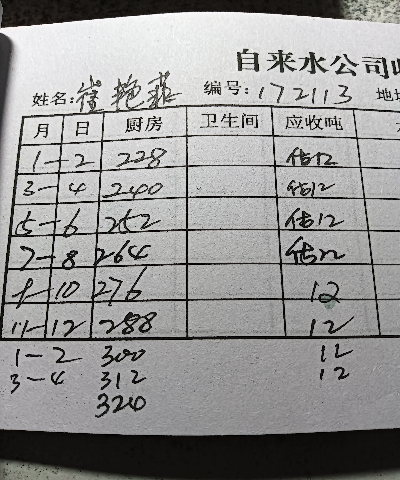 自来水公司收
姓名: 崔艳菲 编号: 172113 地址
月 日 厨房 卫生间 应收吨
1-2 228 估12
3-4 240 估12
5-6 252 估12
7-8 264 估12
9-10 276 12
11-12 288 12
1-2 300 12
3-4 312 12
324